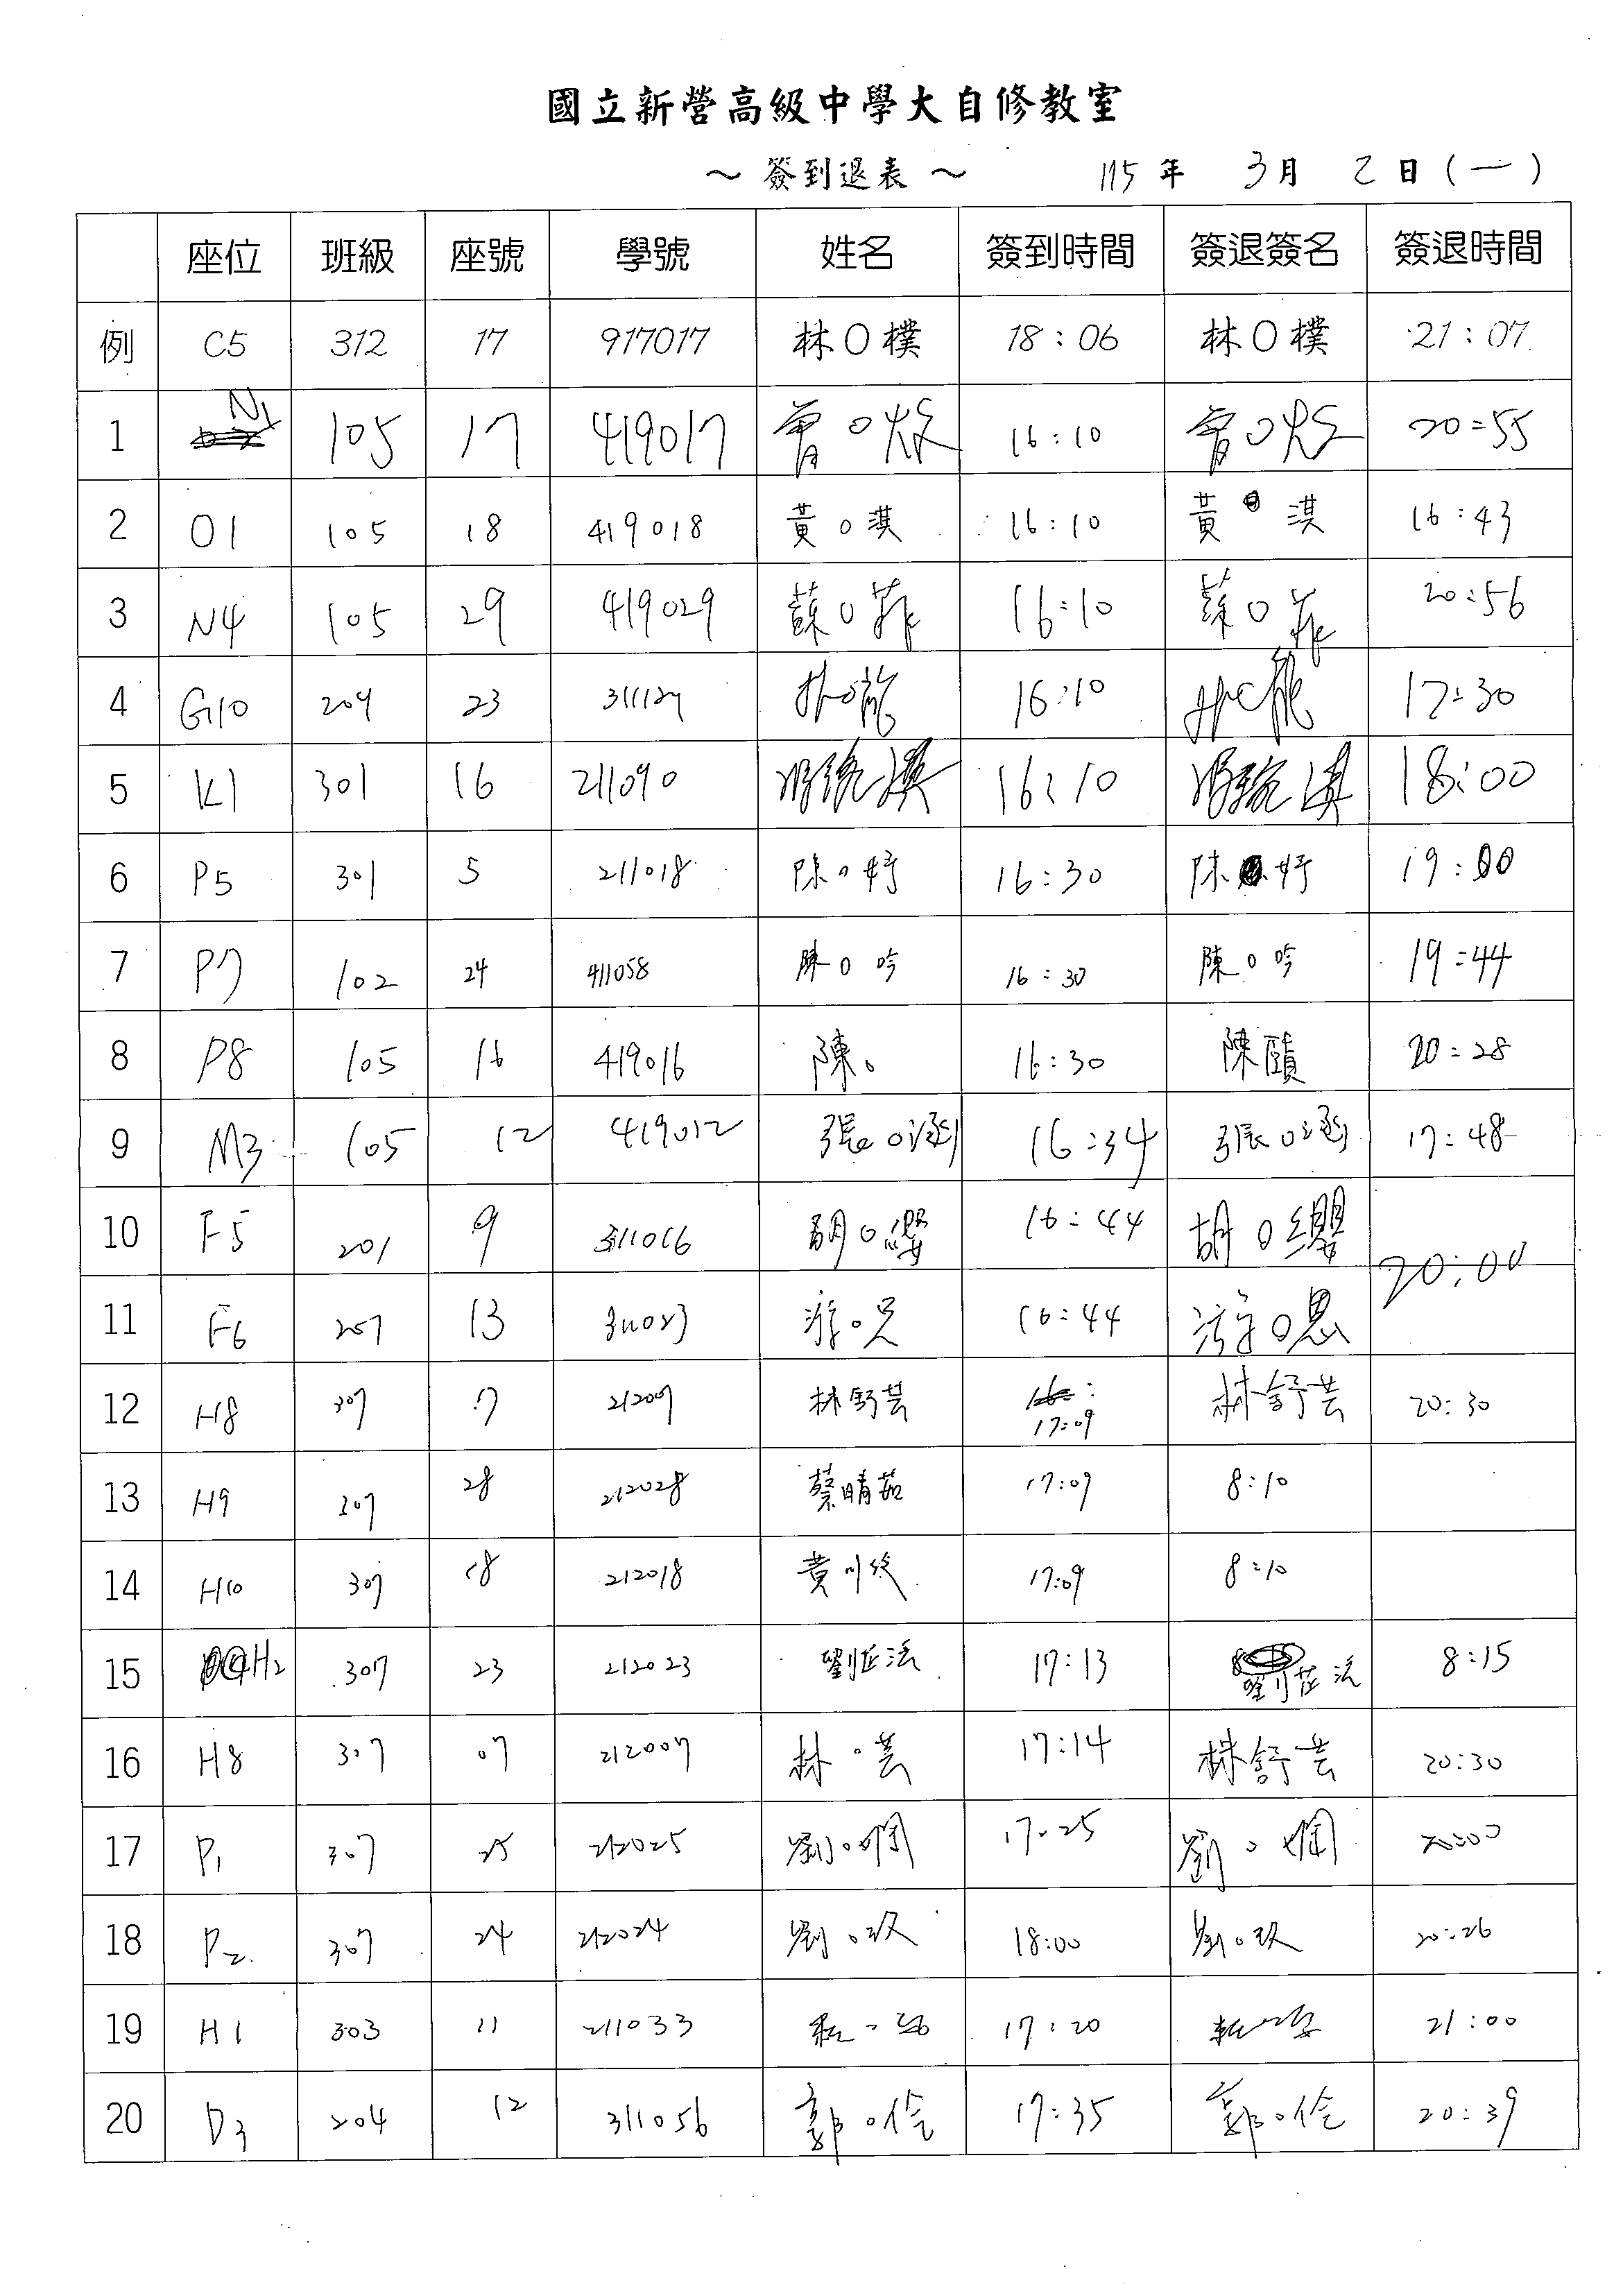 國立新營高級中學大自修教室
～ 簽到退表 ～ 115 年 3月 2 日 (一)
座位 班級 座號 學號 姓名 簽到時間 簽退簽名 簽退時間
例 C5 312 17 917017 林O樸 18：06 林O樸 21：07
1 N1 105 17 419017 曾O 16:10 曾O 20:55
2 O1 105 18 419018 黃O淇 16:10 黃 淇 16:43
3 N4 105 29 419029 蘇O菲 16:10 蘇O菲 20:56
4 G10 209 23 16:10 17:30
5 K1 301 16 211090 16:10 18:00
6 P5 301 5 211018 陳O妤 16:30 陳 妤 19:00
7 P7 102 24 411058 陳O吟 16:30 陳O吟 19:44
8 P8 105 16 419016 陳O 16:30 陳賾 20:28
9 M3 105 12 419012 張O涵 16:34 張O涵 17:48
10 F5 201 9 311016 胡O纓 16:44 胡O纓 20:00
11 F6 207 13 游O恩 16:44 游O恩
12 H8 307 7 21207 林舒芸 17:09 林舒芸 20:30
13 H9 307 28 212028 蔡晴茹 17:09 8:10
14 H10 307 18 212018 黃 17:09 8:10
15 H2 307 23 212023 劉芷 17:13 劉芷 8:15
16 H8 307 07 212007 林O芸 17:14 林舒芸 20:30
17 P1 307 25 212025 劉O嫻 17:25 劉O嫻 20:00
18 P2 307 24 212024 劉O玟 18:00 劉O玟 20:26
19 H1 303 11 211033 17:20 21:00
20 D3 204 12 311056 郭O伶 17:35 郭O伶 20:39